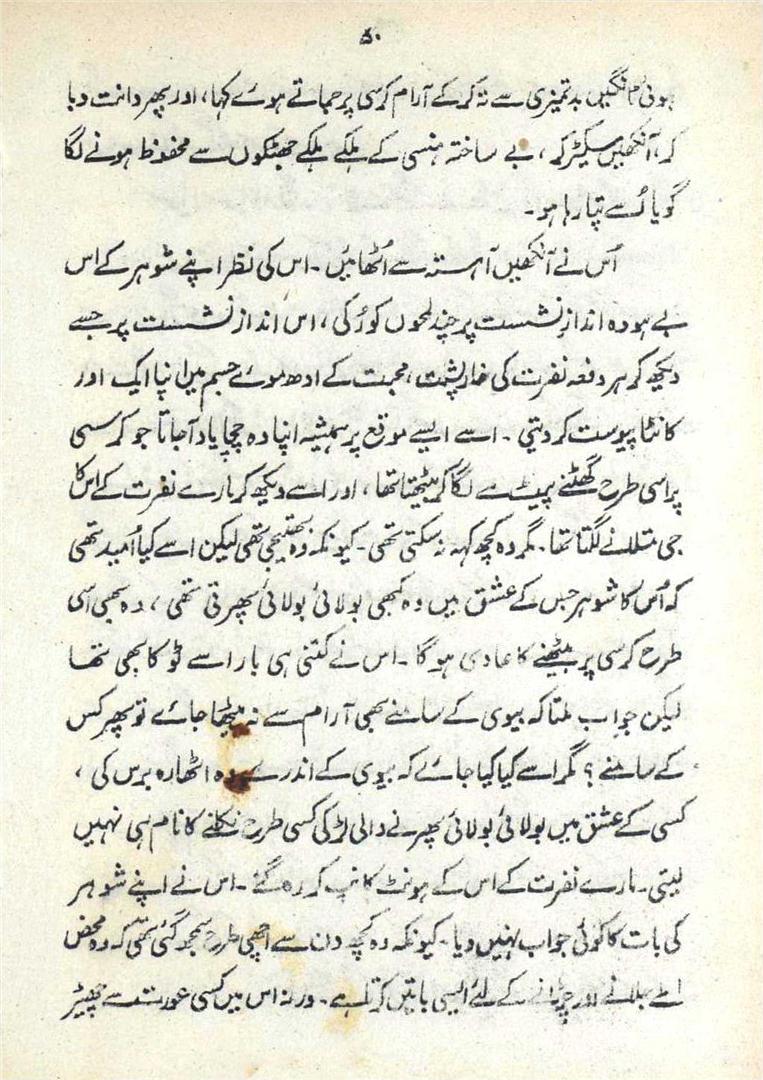 ۵۰
ہوئی ٹانگیں بدتمیزی سے تہ کرکے آرام کرسی پر جماتے ہوئے کہا، اور پھر دانت دبا
کر، آنکھیں سیکڑ کر، بے ساختہ ہنسی کے ہلکے ہلکے جھٹکوں سے محفوظ ہونے لگا
گویا اُسے تپا رہا ہو۔
اُس نے آنکھیں آہستہ سے اُٹھائیں۔ اس کی نظر اپنے شوہر کے اس
بے ہودہ اندازِ نشست پر چند لمحوں کو رُکی، اس انداز نشست پر جسے
دیکھ کر ہر دفعہ نفرت کی خارپشت، محبت کے ادھ موئے جسم میں اپنا ایک اور
کانٹا پیوست کر دیتی۔ اسے ایسے موقع پر ہمیشہ اپنا وہ چچا یاد آجاتا جو کرسی
پر اسی طرح گھٹنے پیٹ سے لگا کر بیٹھتا تھا، اور اسے دیکھ کر مارے نفرت کے اس کا
جی متلانے لگتا تھا۔ مگر وہ کچھ کہہ نہ سکتی تھی۔ کیونکہ وہ بھتیجی تھی لیکن اسے کیا اُمید تھی
کہ اُس کا شوہر جس کے عشق میں وہ کبھی بولائی بولائی پھرتی تھی، وہ بھی اسی
طرح کرسی پر بیٹھنے کا عادی ہوگا۔ اس نے کتنی ہی بار اسے ٹوکا بھی تھا
لیکن جواب ملتا کہ بیوی کے سامنے بھی آرام سے نہ بیٹھا جائے تو پھر کس
کے سامنے؟ مگر اسے کیا کیا جائے کہ بیوی کے اندر سے وہ اٹھارہ برس کی،
کسی کے عشق میں بولائی بولائی پھرنے والی لڑکی کسی طرح نکلنے کا نام ہی نہیں
لیتی۔ مارے نفرت کے اس کے ہونٹ کانپ کر رہ گئے۔ اس نے اپنے شوہر
کی بات کا کوئی جواب نہیں دیا۔ کیونکہ وہ کچھ دن سے اچھی طرح سمجھ گئی تھی کہ وہ محض
اسے جلانے اور چڑانے کے لئے ایسی باتیں کرتا ہے۔ ورنہ اس میں کسی عورت سے چھیڑ